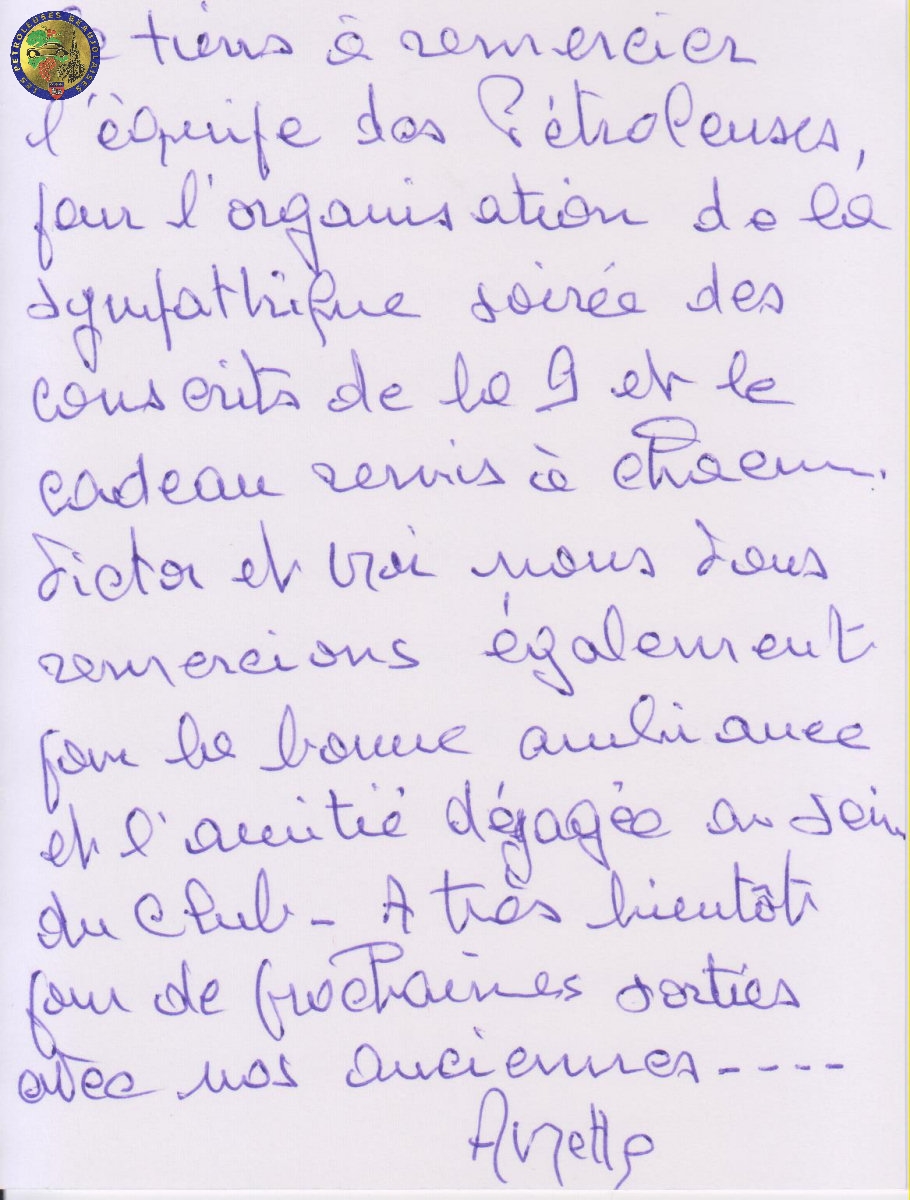 LES PETROLEUSES BEAUJOLAISES
tiens à remercier
l'équipe des Pétroleuses,
pour l'organisation de la
sympathique soirée des
conscrits de la 9 et le
cadeau remis à chacun.
Victor et moi nous vous
remercions également
pour la bonne ambiance
et l'amitié dégagée au sein
du Club - A très bientôt
pour de prochaines sorties
avec nos anciennes ----